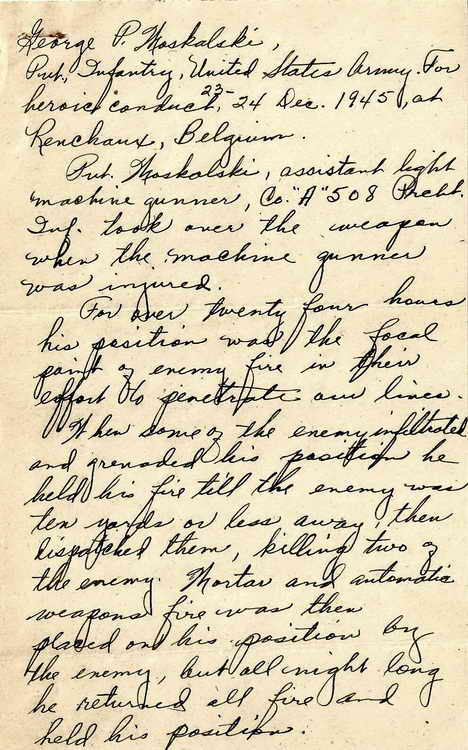 George P. Moskalski,
Pvt., Infantry, United States Army. For
heroic conduct, 23- 24 Dec. 1945, at
Renchaux, Belgium.
Pvt. Moskalski, assistant light
machine gunner, Co. "A" 508 Prcht.
Inf. took over the weapon
when the machine gunner
was injured.
For over twenty four hours
his position was the focal
point of enemy fire in their
effort to penetrate our lines.
When some of the enemy infiltrated
and grenaded his position he
held his fire till the enemy was
ten yards or less away, then
dispatched them, killing two of
the enemy. Mortar and automatic
weapons fire was then
placed on his position by
the enemy, but all night long
he returned all fire and
held his position.